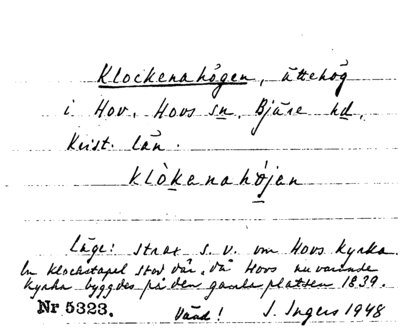 Klockenahögen, ättehög
i Hov. Hovs sn, Bjäre hd,
Krist. län.
Klòkenahøjen
Läge: strax s.v. om Hovs kyrka.
En klockstapel stod där, då Hovs nuvarande
kyrka byggdes på den gamla platsen 1839.
Nr 5323. Vänd! I. Ingers 1948